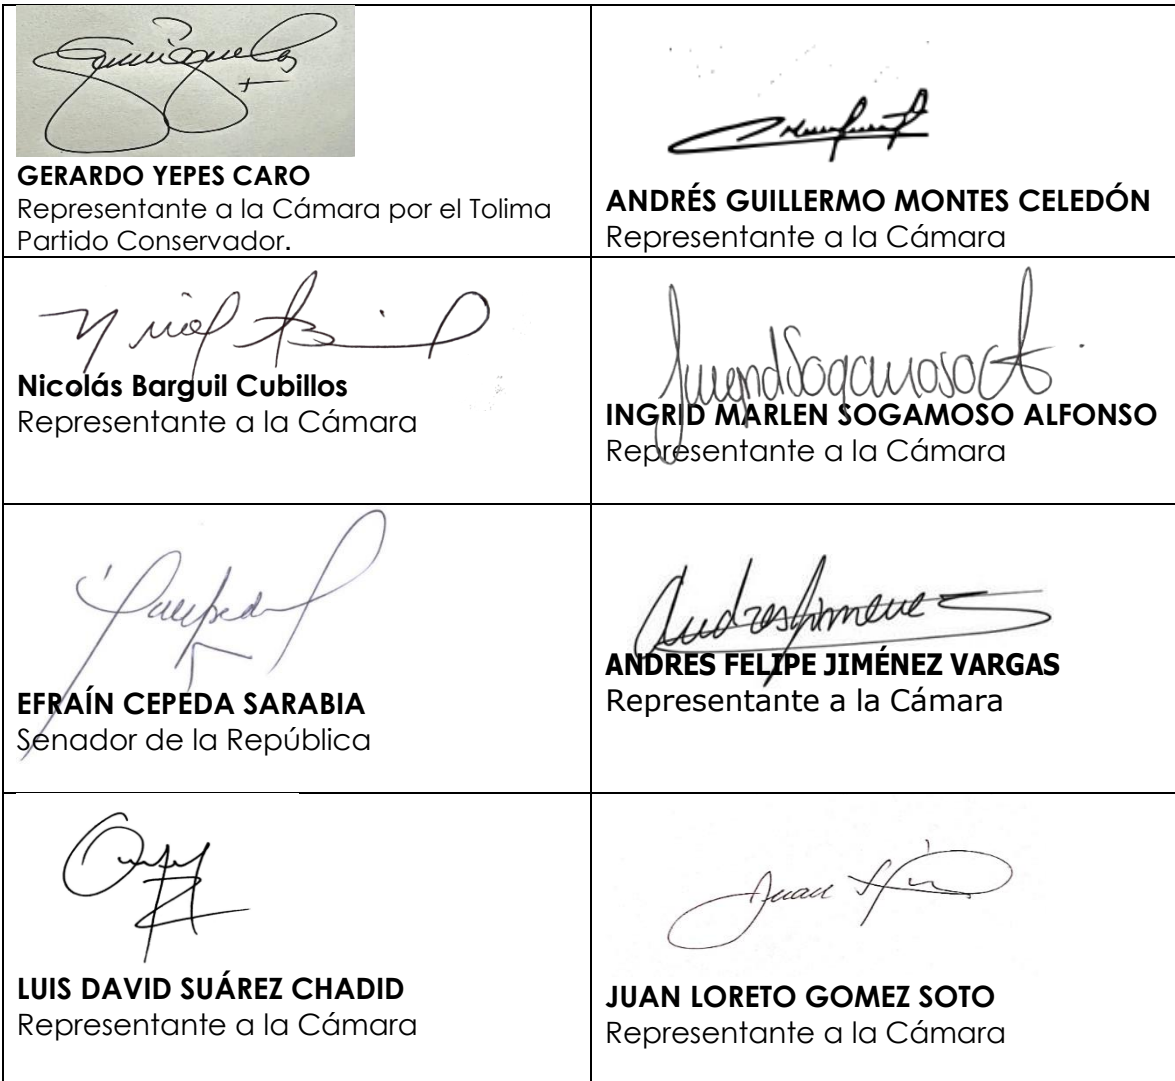 GERARDO YEPES CARO
Representante a la Cámara por el Tolima
Partido Conservador.
ANDRÉS GUILLERMO MONTES CELEDÓN
Representante a la Cámara
Nicolás Barguil Cubillos
Representante a la Cámara
IngridSogamosoA
INGRID MARLEN SOGAMOSO ALFONSO
Representante a la Cámara
EFRAÍN CEPEDA SARABIA
Senador de la República
Andres Jimenez
ANDRES FELIPE JIMÉNEZ VARGAS
Representante a la Cámara
LUIS DAVID SUÁREZ CHADID
Representante a la Cámara
Juan
JUAN LORETO GOMEZ SOTO
Representante a la Cámara